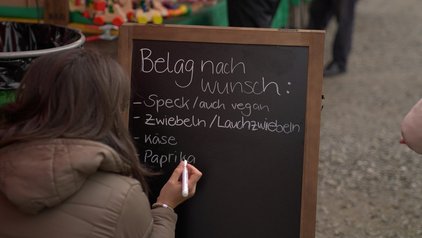 Belag nach
wunsch:
- Speck/auch vegan
- Zwiebeln/Lauchzwiebeln
- Käse
- Paprika